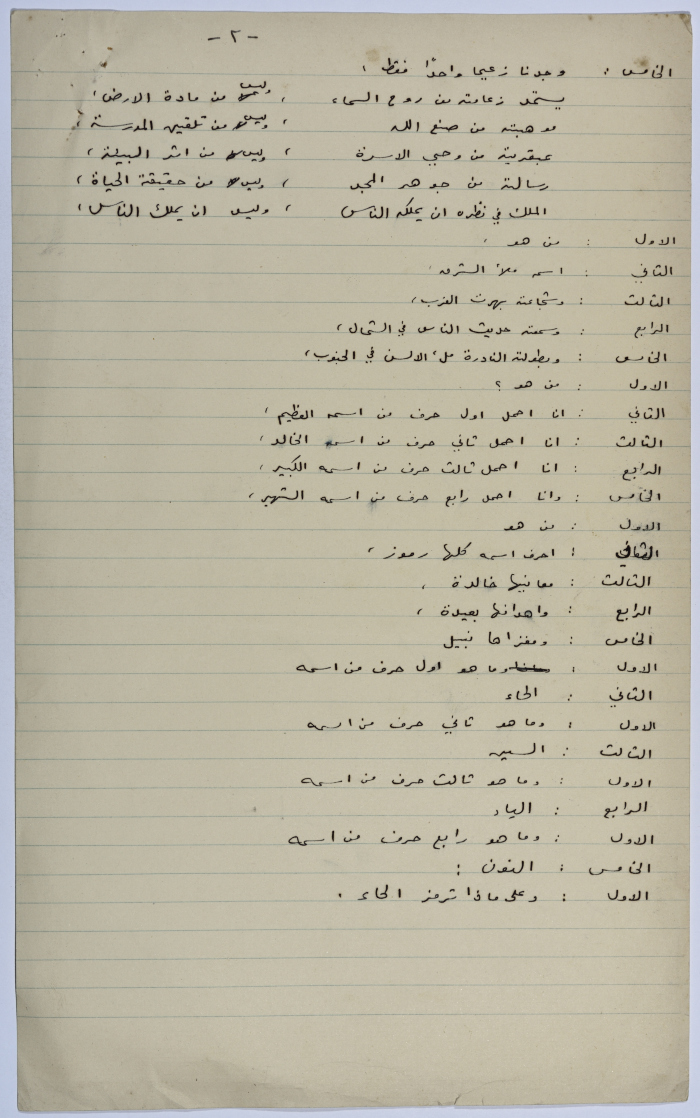 -٢-
الخامس : وجدنا زعيما واحدًا فقط ،
يستمد زعامته من روح السماء ، وليس من مادة الارض ،
موهبته من صنع الله ، وليس من تلقين المدرسة ،
عبقريته من وحي الاسرة ، وليس من اثر البيئة ،
رسالته من جوهر المجد ، وليس من حقيقة الحياة ،
الملك في نظره ان يملكه الناس ، وليس ان يملك الناس ،
الاول : من هو .
الثاني : اسمه ملأ الشرق
الثالث : وشجاعته بهرت الغرب ،
الرابع : وسمعته حديث الناس في الشمال ،
الخامس : وبطولته النادرة ملء الالسن في الجنوب ،
الاول : من هو ؟
الثاني : انا احمل اول حرف من اسمه العظيم ،
الثالث : انا احمل ثاني حرف من اسمه الخالد ،
الرابع : انا احمل ثالث حرف من اسمه الكبير ،
الخامس : وانا احمل رابع حرف من اسمه الشهير ،
الاول : من هو
الثاني : احرف اسمه كلها رموز ،
الثالث : معانيها خالدة .
الرابع : واهدافها بعيدة ،
الخامس : ومغزاها نبيل
الاول : وما هو اول حرف من اسمه
الثاني : الحاء
الاول : وما هو ثاني حرف من اسمه
الثالث : السين
الاول : وما هو ثالث حرف من اسمه
الرابع : الياء
الاول : وما هو رابع حرف من اسمه
الخامس : النون :
الاول : وعلى ماذا ترمز الحاء .